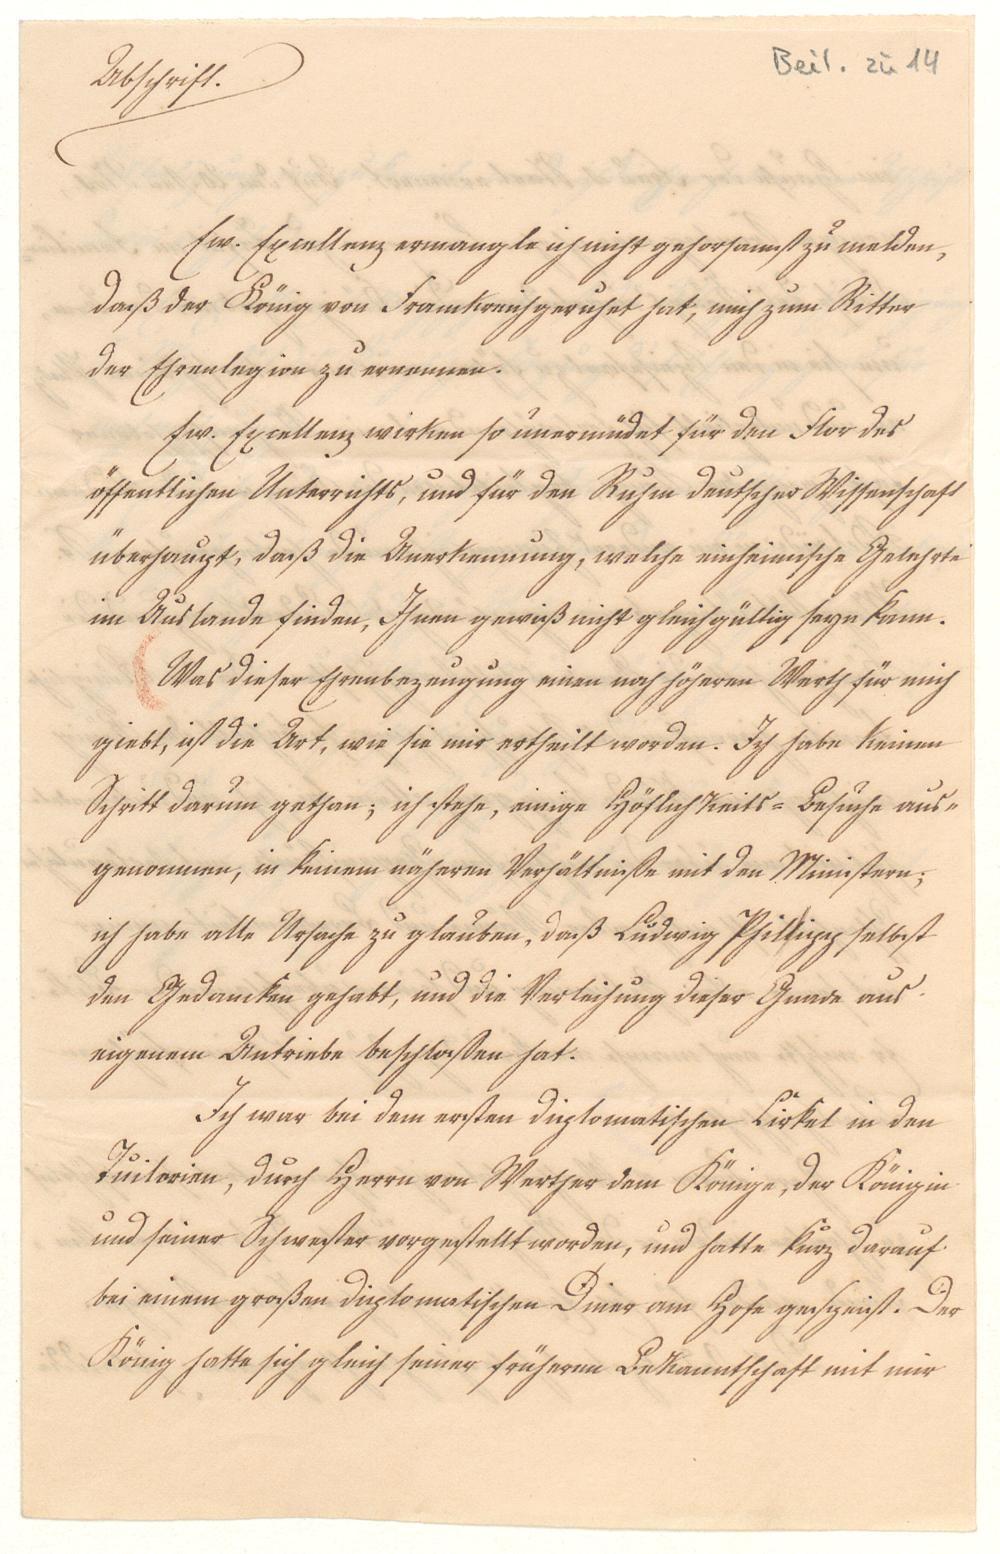 Abschrift.
Beil. zu 14
Ew. Excellenz ermangle ich nicht gehorsamst zu melden,
daß der König von Frankreich geruhet hat, mich zum Ritter
der Ehrenlegion zu ernennen.
Ew. Excellenz wirken so unermüdet für den Flor des
öffentlichen Unterrichts, und für den Ruhm deutscher Wissenschaft
überhaupt, daß die Anerkennung, welche einheimische Gelehrte
im Auslande finden, Ihnen gewiß nicht gleichgültig seyn kann.
Was dieser Ehrenbezeugung einen noch höheren Werth für mich
giebt, ist die Art, wie sie mir ertheilt worden. Ich habe keinen
Schritt darum gethan; ich stehe, einige Höflichkeits=Besuche aus=
genommen, in keinem näheren Verhältniße mit den Ministern;
ich habe alle Ursache zu glauben, daß Ludwig Philipp selbst
den Gedanken gehabt, und die Verleihung dieser Gnade aus
eigenem Antriebe beschloßen hat.
Ich war bei dem ersten diplomatischen Cirkel in den
Tuilerien, durch Herrn von Werther dem Könige, der Königin
und seiner Schwester vorgestellt worden, und hatte kurz darauf
bei einem großen diplomatischen Diner am Hofe gespeist. Der
König hatte sich gleich seiner früheren Bekanntschaft mit mir